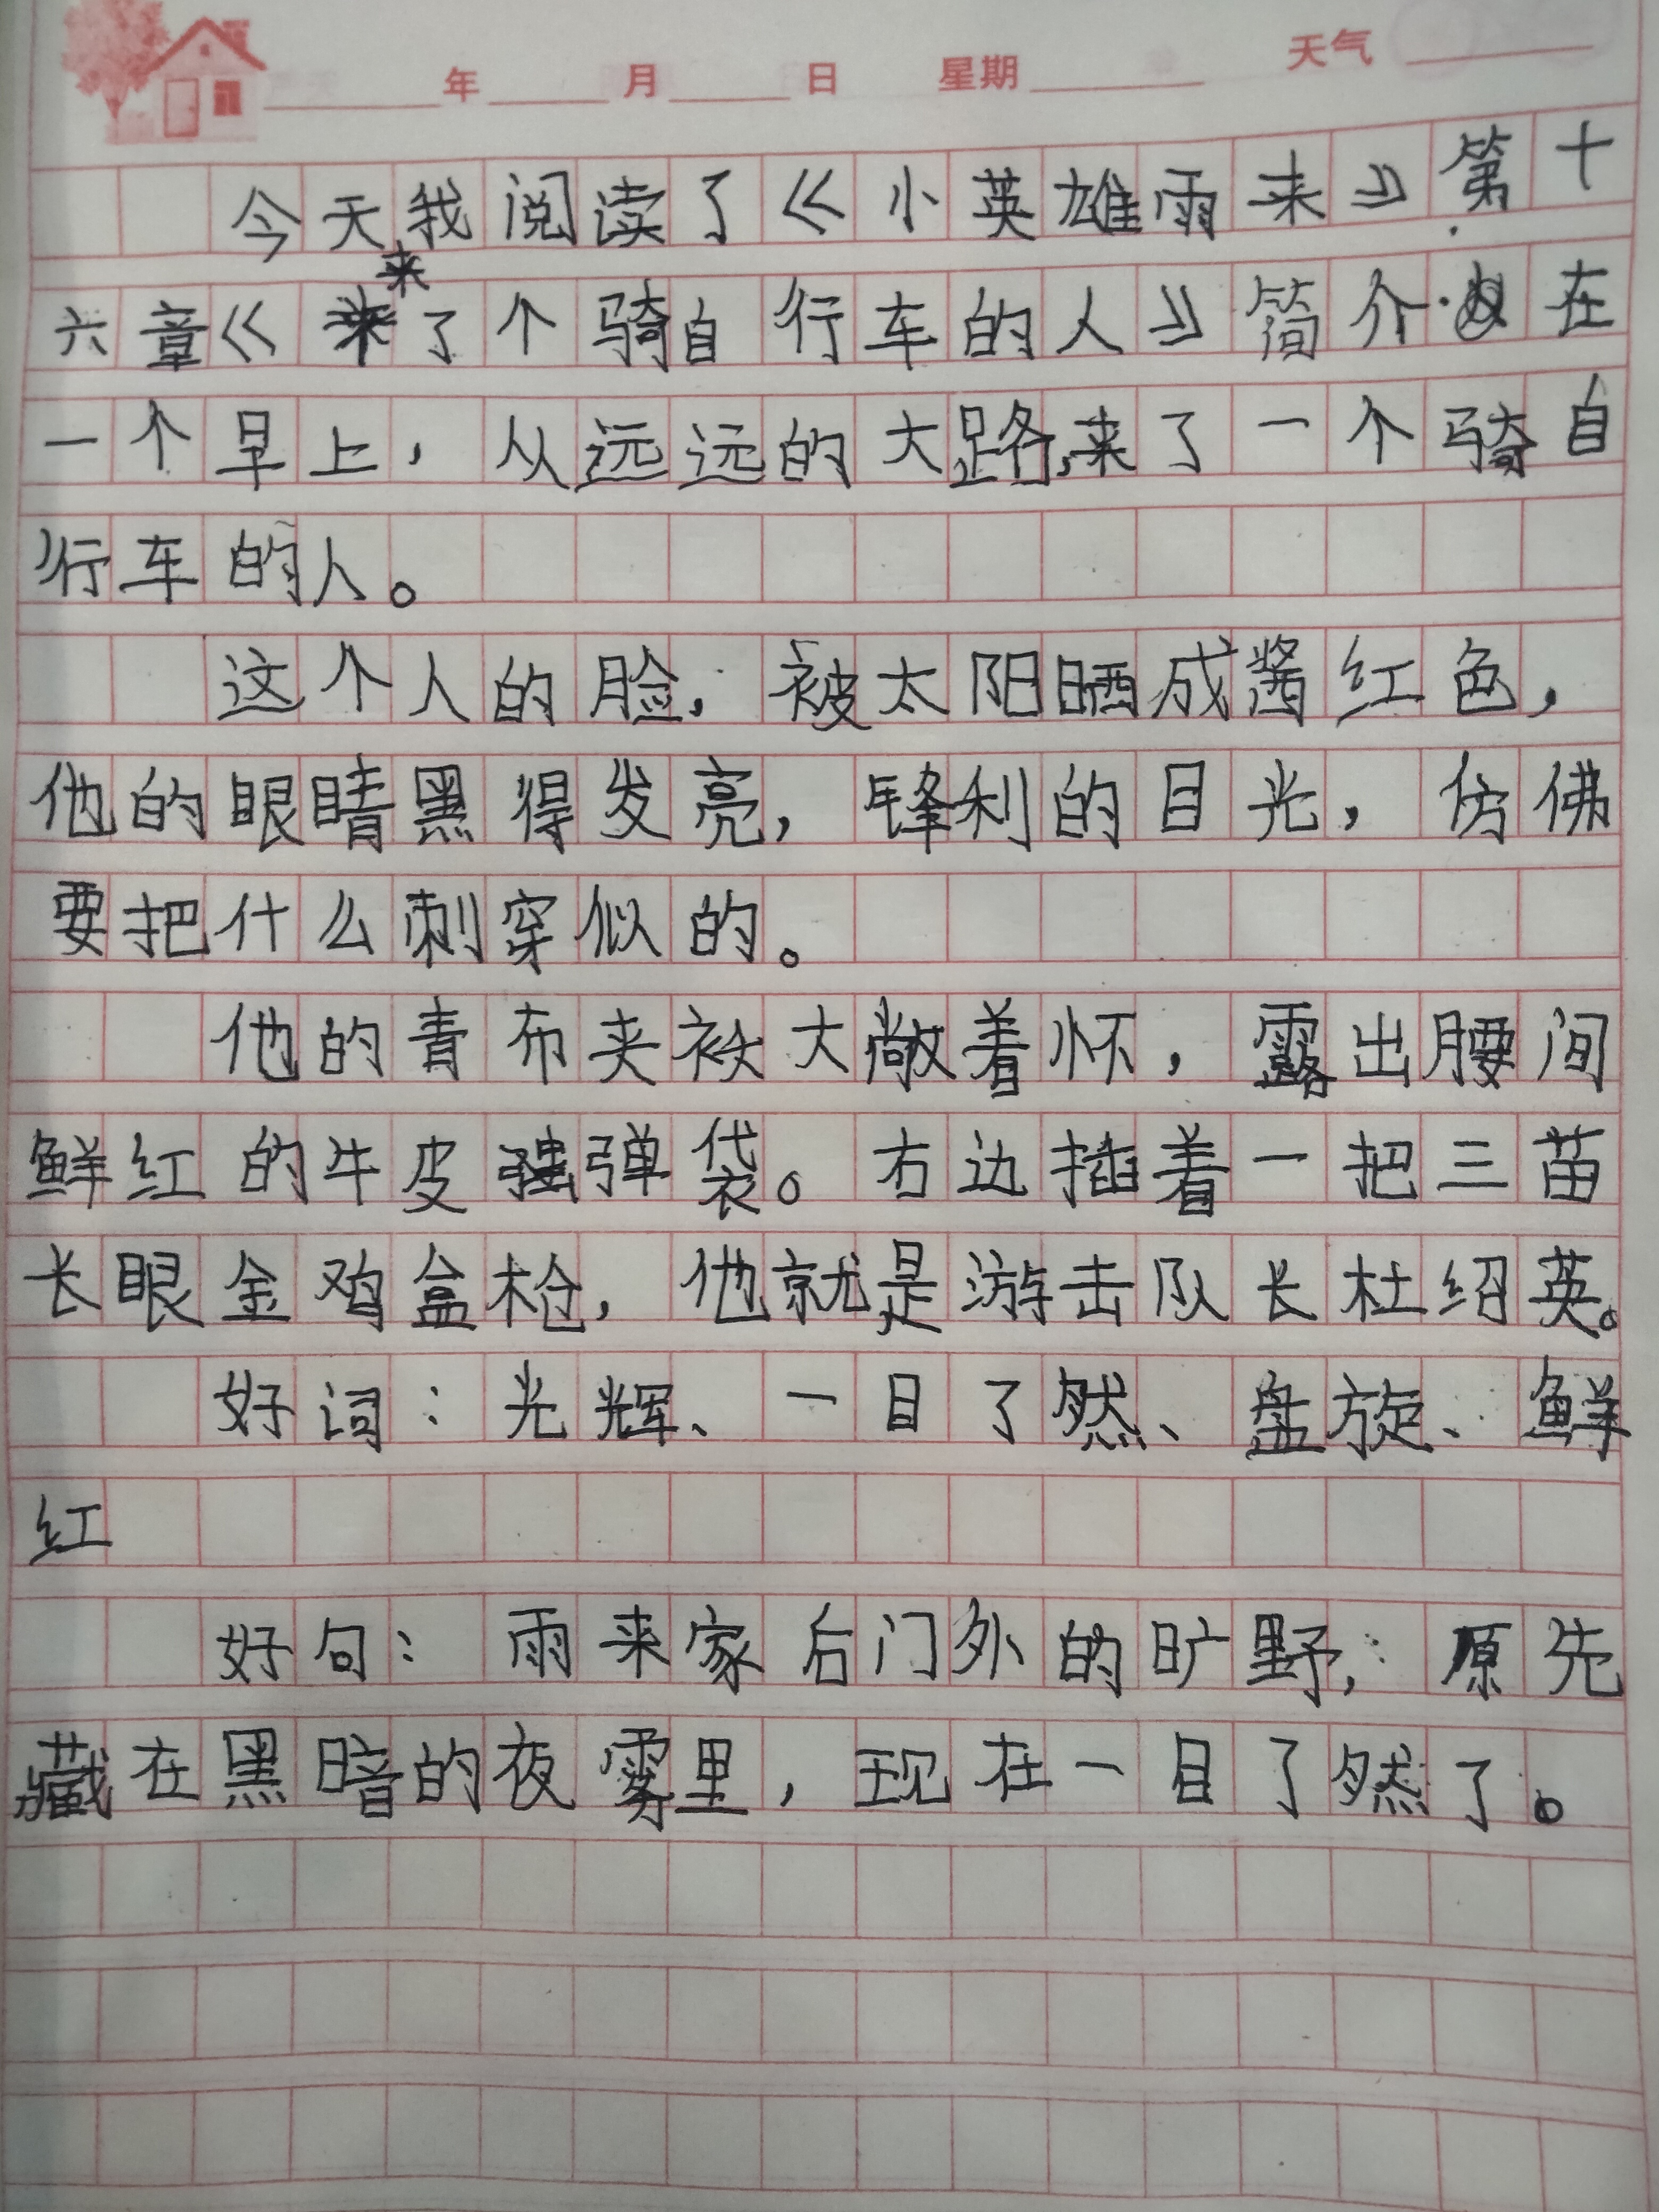 年 月 日 星期 天气
今天我阅读了《小英雄雨来》第十
来
六章《来了个骑自行车的人》简介:在
一个早上，从远远的大路,来了一个骑自
行车的人。
这个人的脸，被太阳晒成酱红色，
他的眼睛黑得发亮，锋利的目光，仿佛
要把什么刺穿似的。
他的青布夹袄大敞着怀，露出腰间
鲜红的牛皮弹袋。右边插着一把三苗
长眼金鸡盒枪，他就是游击队长杜绍英。
好词：光辉、一目了然、盘旋、鲜
红
好句：雨来家后门外的旷野，原先
藏在黑暗的夜雾里，现在一目了然了。